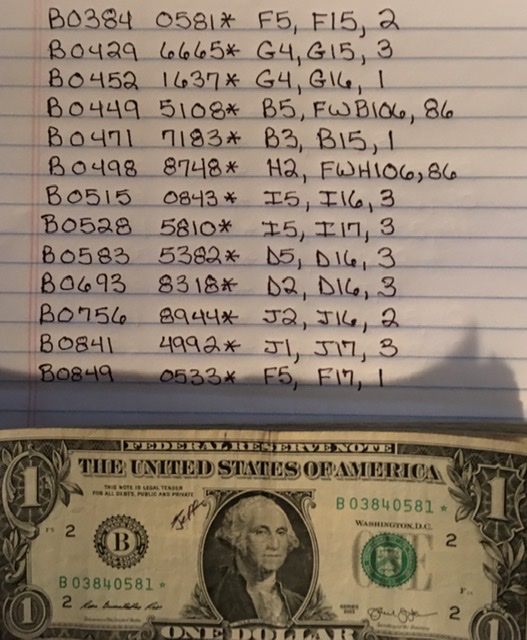 B0384 0581* F5, F15, 2
B0429 6665* G4, G15, 3
B0452 1637* G4, G16, 1
B0449 5108* B5, FWB106, 86
B0471 7183* B3, B15, 1
B0498 8748* H2, FWH106, 86
B0515 0843* I5, I16, 3
B0528 5810* I5, I17, 3
B0583 5382* D5, D16, 3
B0693 8318* D2, D16, 3
B0756 8944* J2, J16, 2
B0841 4992* J1, J17, 3
B0849 0533* F5, F17, 1
FEDERAL RESERVE NOTE
THE UNITED STATES OF AMERICA
1
1
THIS NOTE IS LEGAL TENDER
FOR ALL DEBTS, PUBLIC AND PRIVATE
B 03840581 *
F5 2
B
WASHINGTON, D.C.
ONE
2
B 03840581 *
2
SERIES
2
1
1
ONE DOLLAR